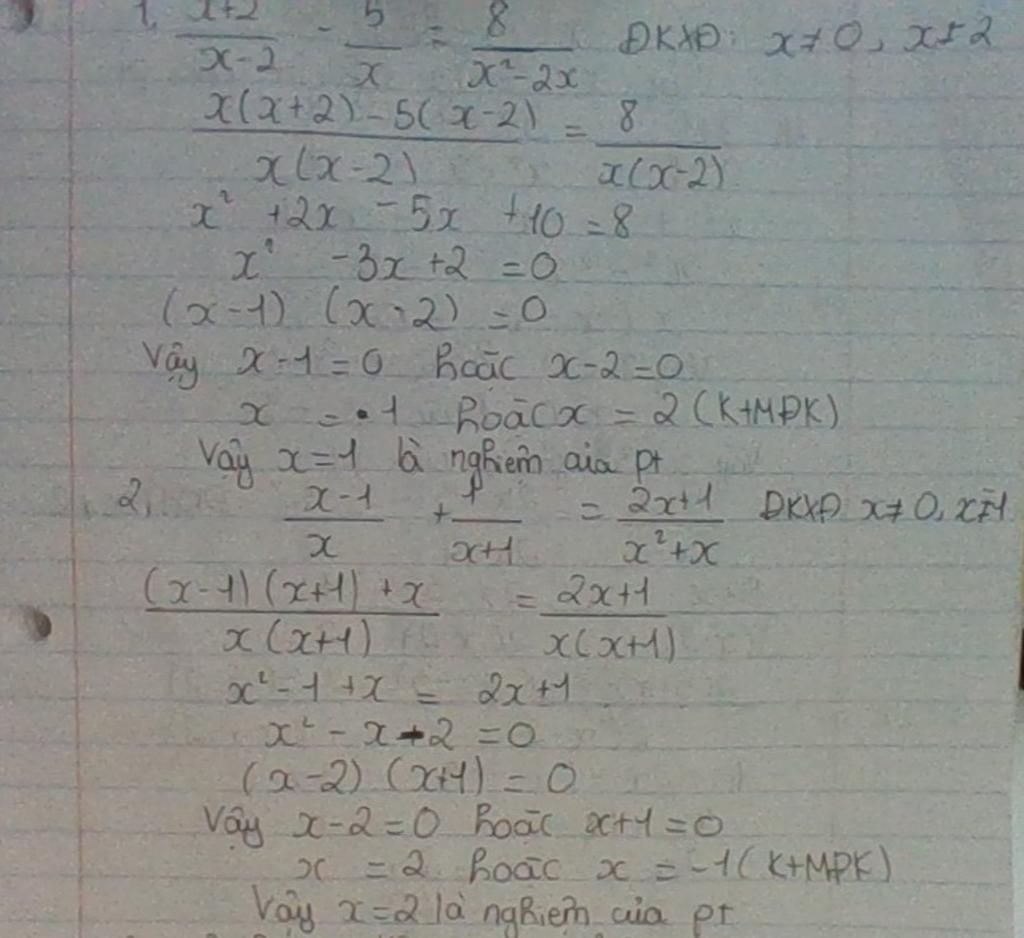 1. (x+2)/(x-2) - 5/x = 8/(x²-2x) ĐKXĐ: x≠0, x≠2
(x(x+2)-5(x-2))/(x(x-2)) = 8/(x(x-2))
x² +2x -5x +10 = 8
x² -3x +2 = 0
(x-1) (x-2) = 0
Vậy x-1=0 hoặc x-2=0
x = 1 hoặc x = 2 (KTMĐK)
Vậy x=1 là nghiệm của pt
2, (x-1)/x + 1/(x+1) = (2x+1)/(x²+x) ĐKXĐ x≠0, x≠-1
((x-1)(x+1)+x)/(x(x+1)) = (2x+1)/(x(x+1))
x²-1+x = 2x+1
x²-x-2 = 0
(x-2) (x+1) = 0
Vậy x-2=0 hoặc x+1=0
x = 2 hoặc x = -1 (KTMĐK)
Vậy x=2 là nghiệm của pt